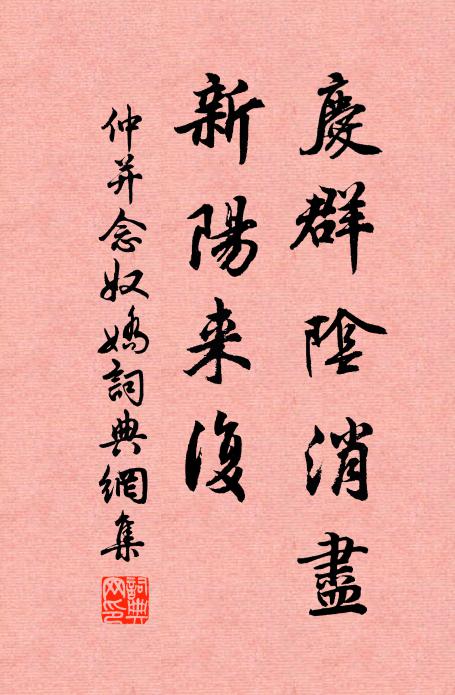 慶群陰消盡
新陽来復
仲并念奴嬌詞典網集
詞典网印